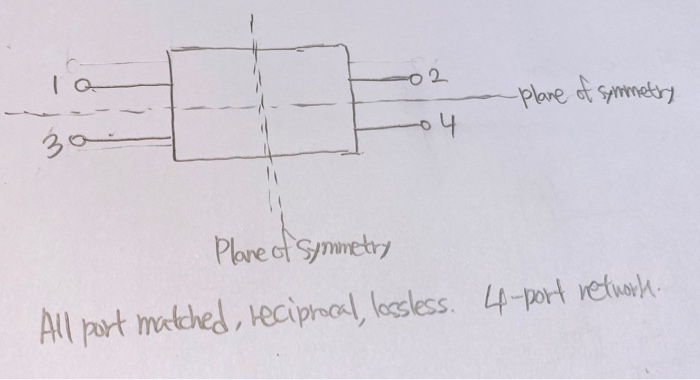 1
2
plane of symmetry
3
4
Plane of Symmetry
All port matched, reciprocal, lossless. 4-port network.